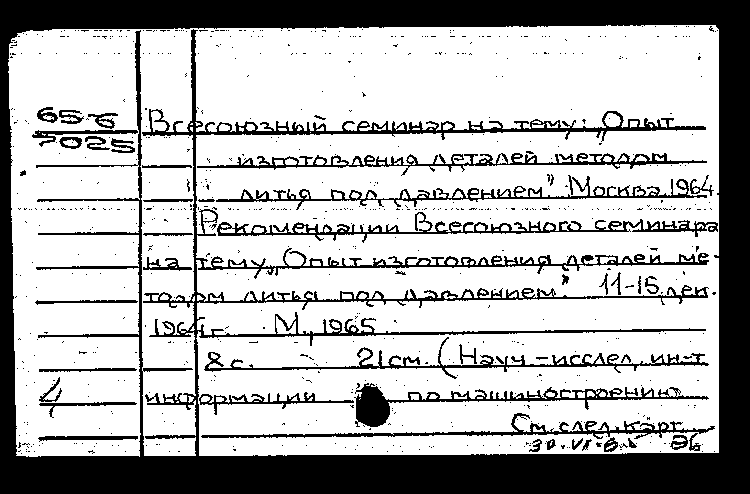 65-6
7025
Всесоюзный семинар на тему: „Опыт
изготовления деталей методом
литья под давлением" Москва, 1964.
Рекомендации Всесоюзного семинара
на тему „Опыт изготовления деталей ме-
тодом литья под давлением." 11-15 дек.
1964 г. М., 1965.
8 с. 21 см. (Науч.-исслед. ин-т
4 информации по машиностроению
См. след. карт.
30.VI.65